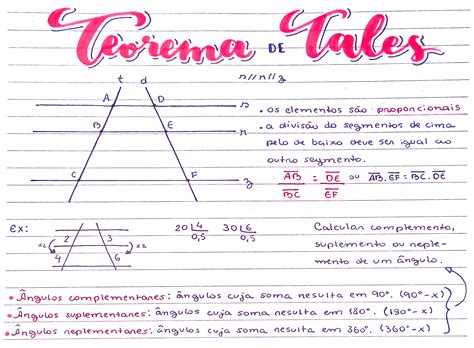 Teorema DE Tales
t d
r//n//z
A D r
B E n
C F z
• Os elementos são proporcionais
• a divisão do segmentos de cima
pelo de baixo deve ser igual ao
outro segmento.
AB = DE ou AB.EF = BC.DE
BC EF
ex:
2 3
4 6
x2 x2
20 4 30 6
0,5 0,5
Calcular complemento,
suplemento ou reple-
mento de um ângulo.
• Ângulos complementares: ângulos cuja soma resulta em 90°. (90°-x)
• Ângulos suplementares: ângulos cuja soma resulta em 180°. (180°-x)
• Ângulos replementares: ângulos cuja soma resulta em 360°. (360°-x)